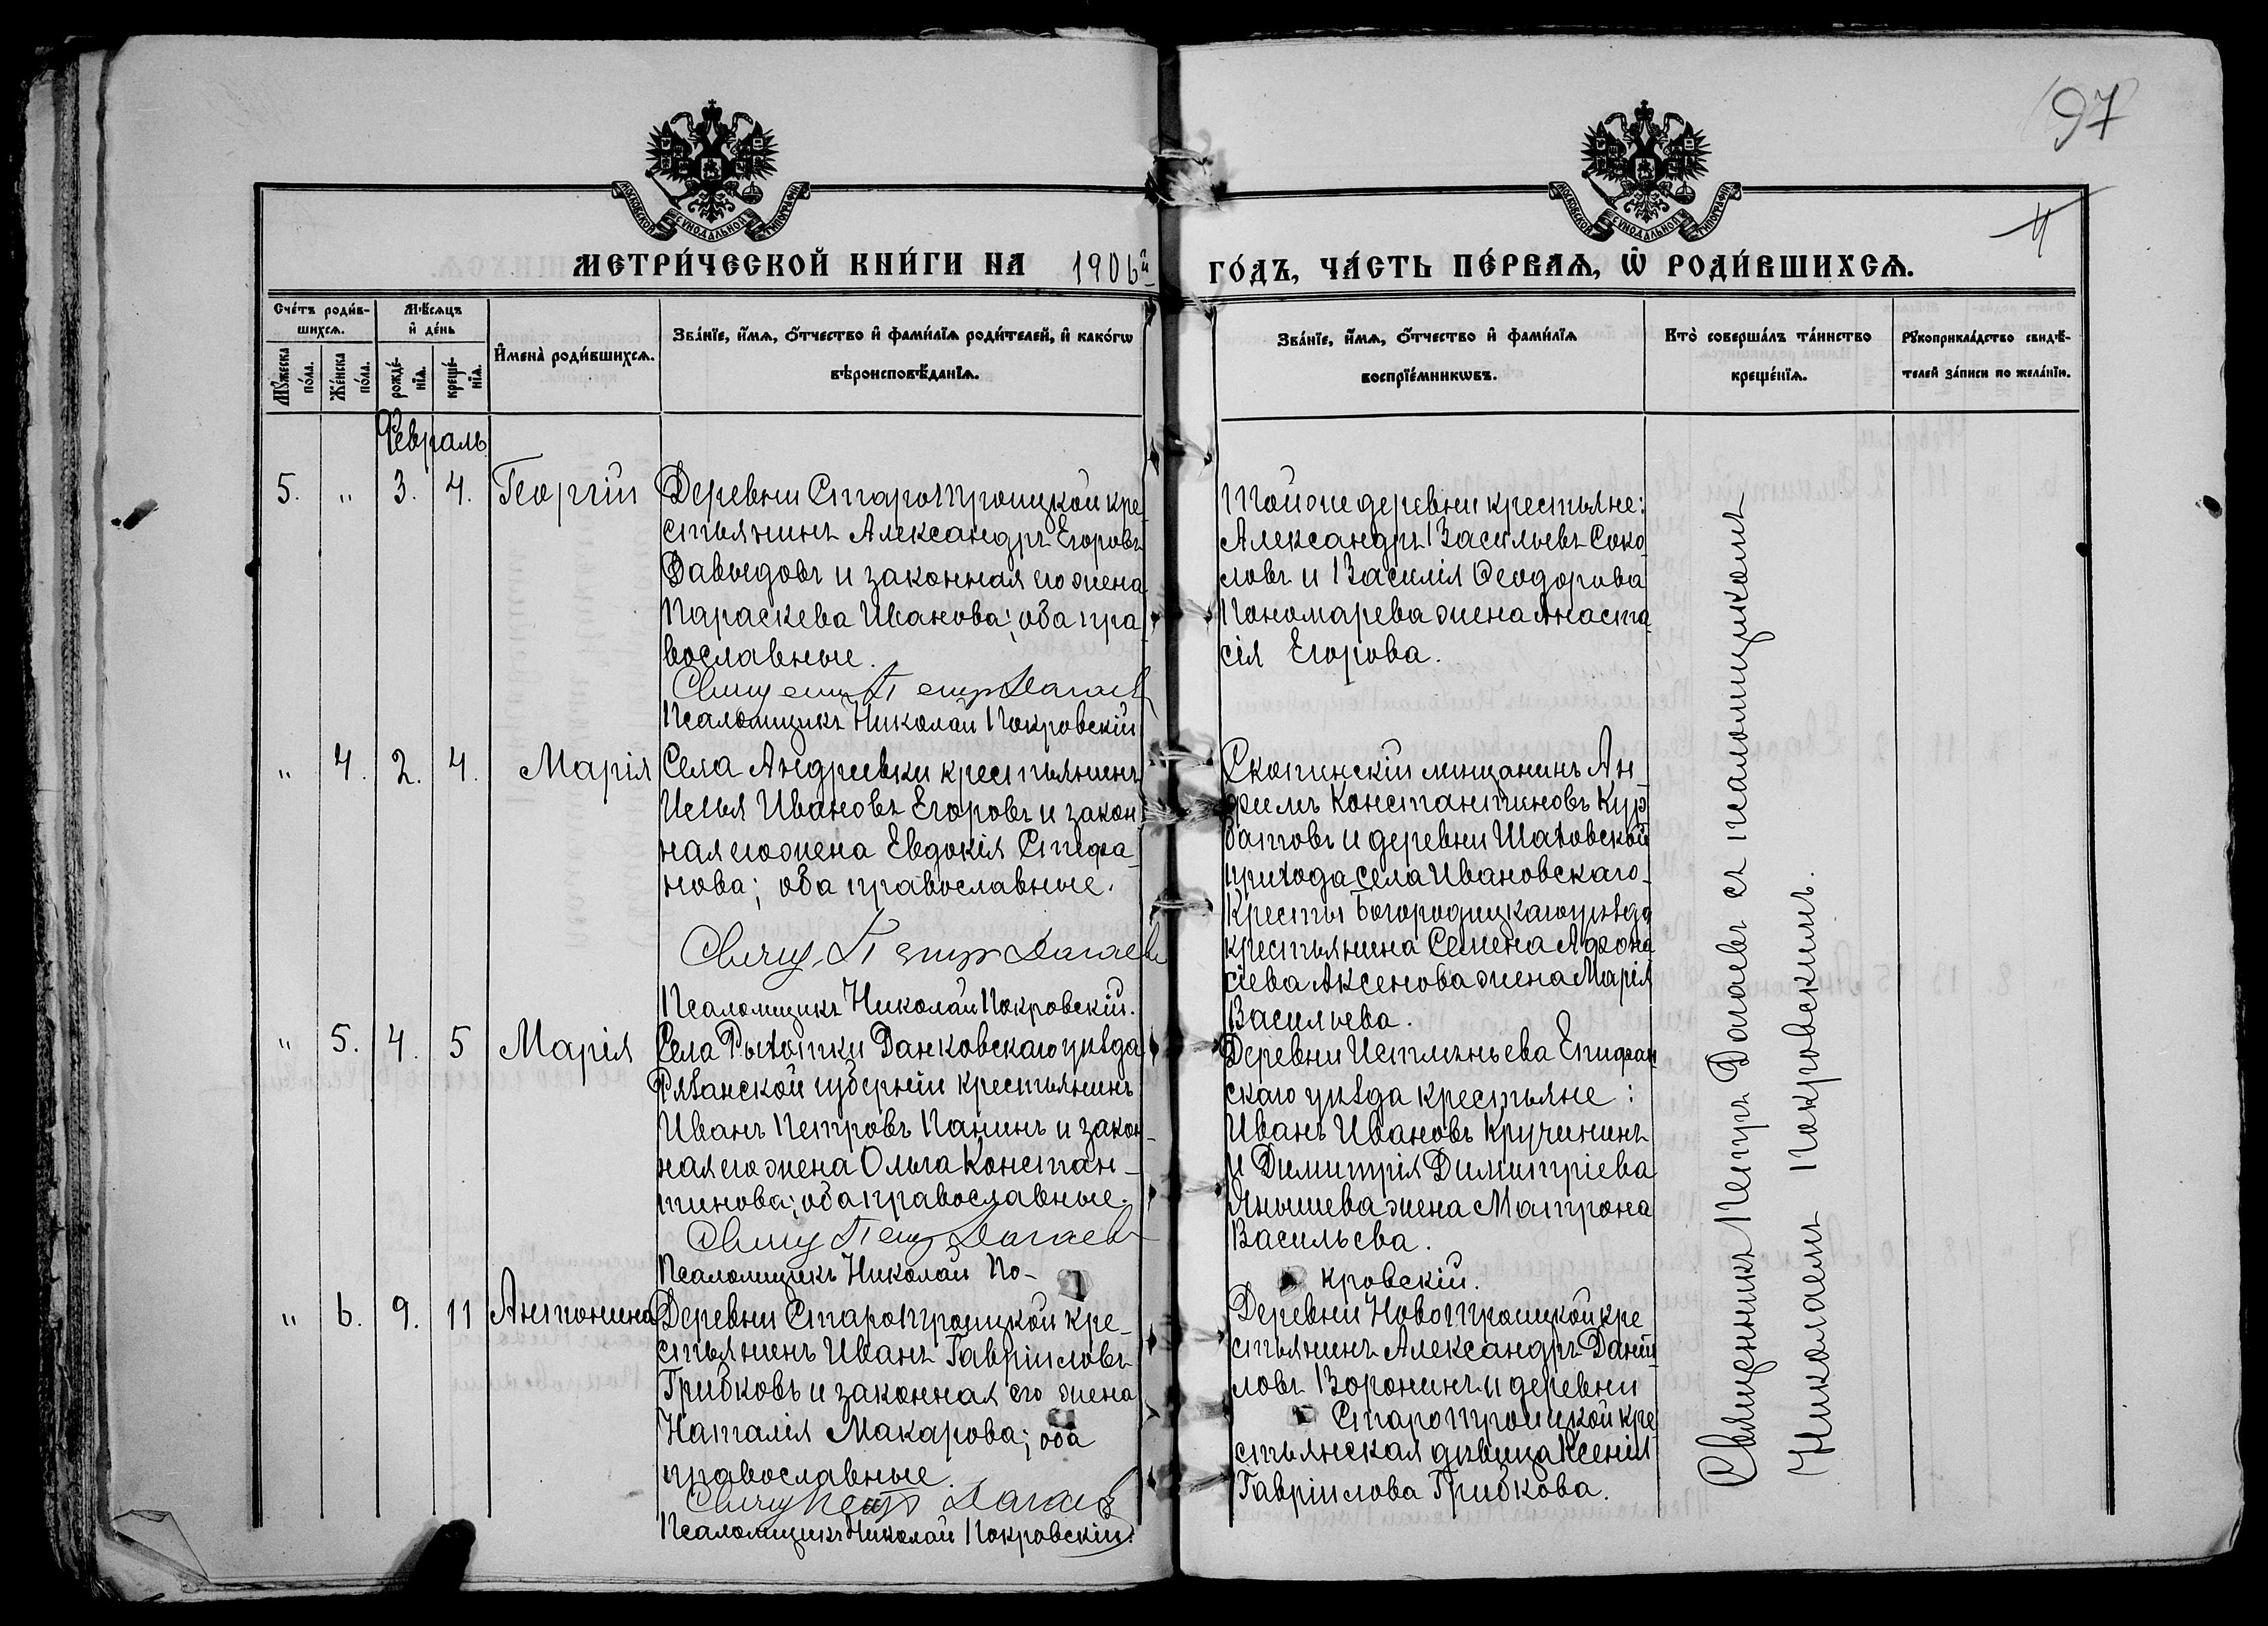 97
4
МОСКОВСКОЙ СѴНОДАЛЬНОЙ ТИПОГРАФІИ
МОСКОВСКОЙ СѴНОДАЛЬНОЙ ТИПОГРАФІИ
МЕТРИ́ЧЕСКОЙ КНИ́ГИ НА 1906й ГО́ДЪ, ЧА́СТЬ ПЕ́РВАѦ, Ѡ҆ РОДИ́ВШИХСѦ.
Сче́тъ роди́в-
шихсѧ.
Мꙋ́жеска
по́ла.
Же́нска
по́ла.
Мѣ́сѧцъ
и҆ де́нь
рожде́-
нїѧ.
креще́-
нїѧ.
И҆мена̀ роди́вшихсѧ.
Зва́нїе, и҆́мѧ, ѻ҆́тчество и҆ фами́лїѧ роди́телей, и҆ како́гѡ
вѣроисповѣ́данїѧ.
Зва́нїе, и҆́мѧ, ѻ҆́тчество и҆ фами́лїѧ
воспрїе́мникѡвъ.
Кто̀ соверша́лъ та́инство
креще́нїѧ.
Рꙋкоприкла́дство свидѣ́-
телей за́писи по жела́нїю.
Февраль
5. " 3. 4. Георгій
Деревни СтароТроицкой кре-
стьянинъ Александръ Егоровъ
Давыдовъ и законная его жена
Параскева Иванова; оба пра-
вославные.
Священ. Петръ Дагаев
Псаломщикъ Николай Покровскій
Той же деревни крестьяне:
Александръ Васильевъ Соко-
ловъ и Василія Ѳеодорова
Пономарева жена Анаста-
сія Егорова.
" 4. 2. 4. Марія
Села Андреевки крестьянинъ
Илья Ивановъ Егоровъ и закон-
ная его жена Евдокія Стефа-
нова; оба православные.
Свящ. Петръ Дагаев
Псаломщикъ Николай Покровскій.
Скопинскій мищанинъ Ан-
фимъ Константиновъ Кур-
батовъ и деревни Шаховской
прихода села Ивановскаго-
Кресты Богородицкаго уѣзда
крестьянина Семена Афона-
сіева Аксенова жена Марія
Васильева.
" 5. 4. 5 Марія
Села Рыхотки Данковскаго уѣзда
Рязанской губерніи крестьянинъ
Иванъ Петровъ Панинъ и закон-
ная его жена Ольга Констан-
тинова; оба православные.
Свящ Петр Дагаев
Псаломщикъ Николай По-
кровскій.
Деревни Истленьева Епифан
скаго уѣзда крестьяне:
Иванъ Ивановъ Кручининъ
и Димитрія Димитріева
Янышева жена Матрона
Васильева.
" 6. 9. 11 Антонина
Деревни СтароТроицкой кре-
стьянинъ Иванъ Гавріиловъ
Грибковъ и законная его жена
Наталія Макарова; оба
православные.
Свящ Петр Дагаев
Псаломщикъ Николай Покровскій.
Деревни НовоТроицкой кре
стьянинъ Александръ Даніи-
ловъ Воронинъ и деревни
СтароТроицкой кре
стьянская дѣвица Ксенія
Гавріилова Грибкова.
Священникъ Петръ Догаевъ съ псаломщикомъ
Николаемъ Покровскимъ.